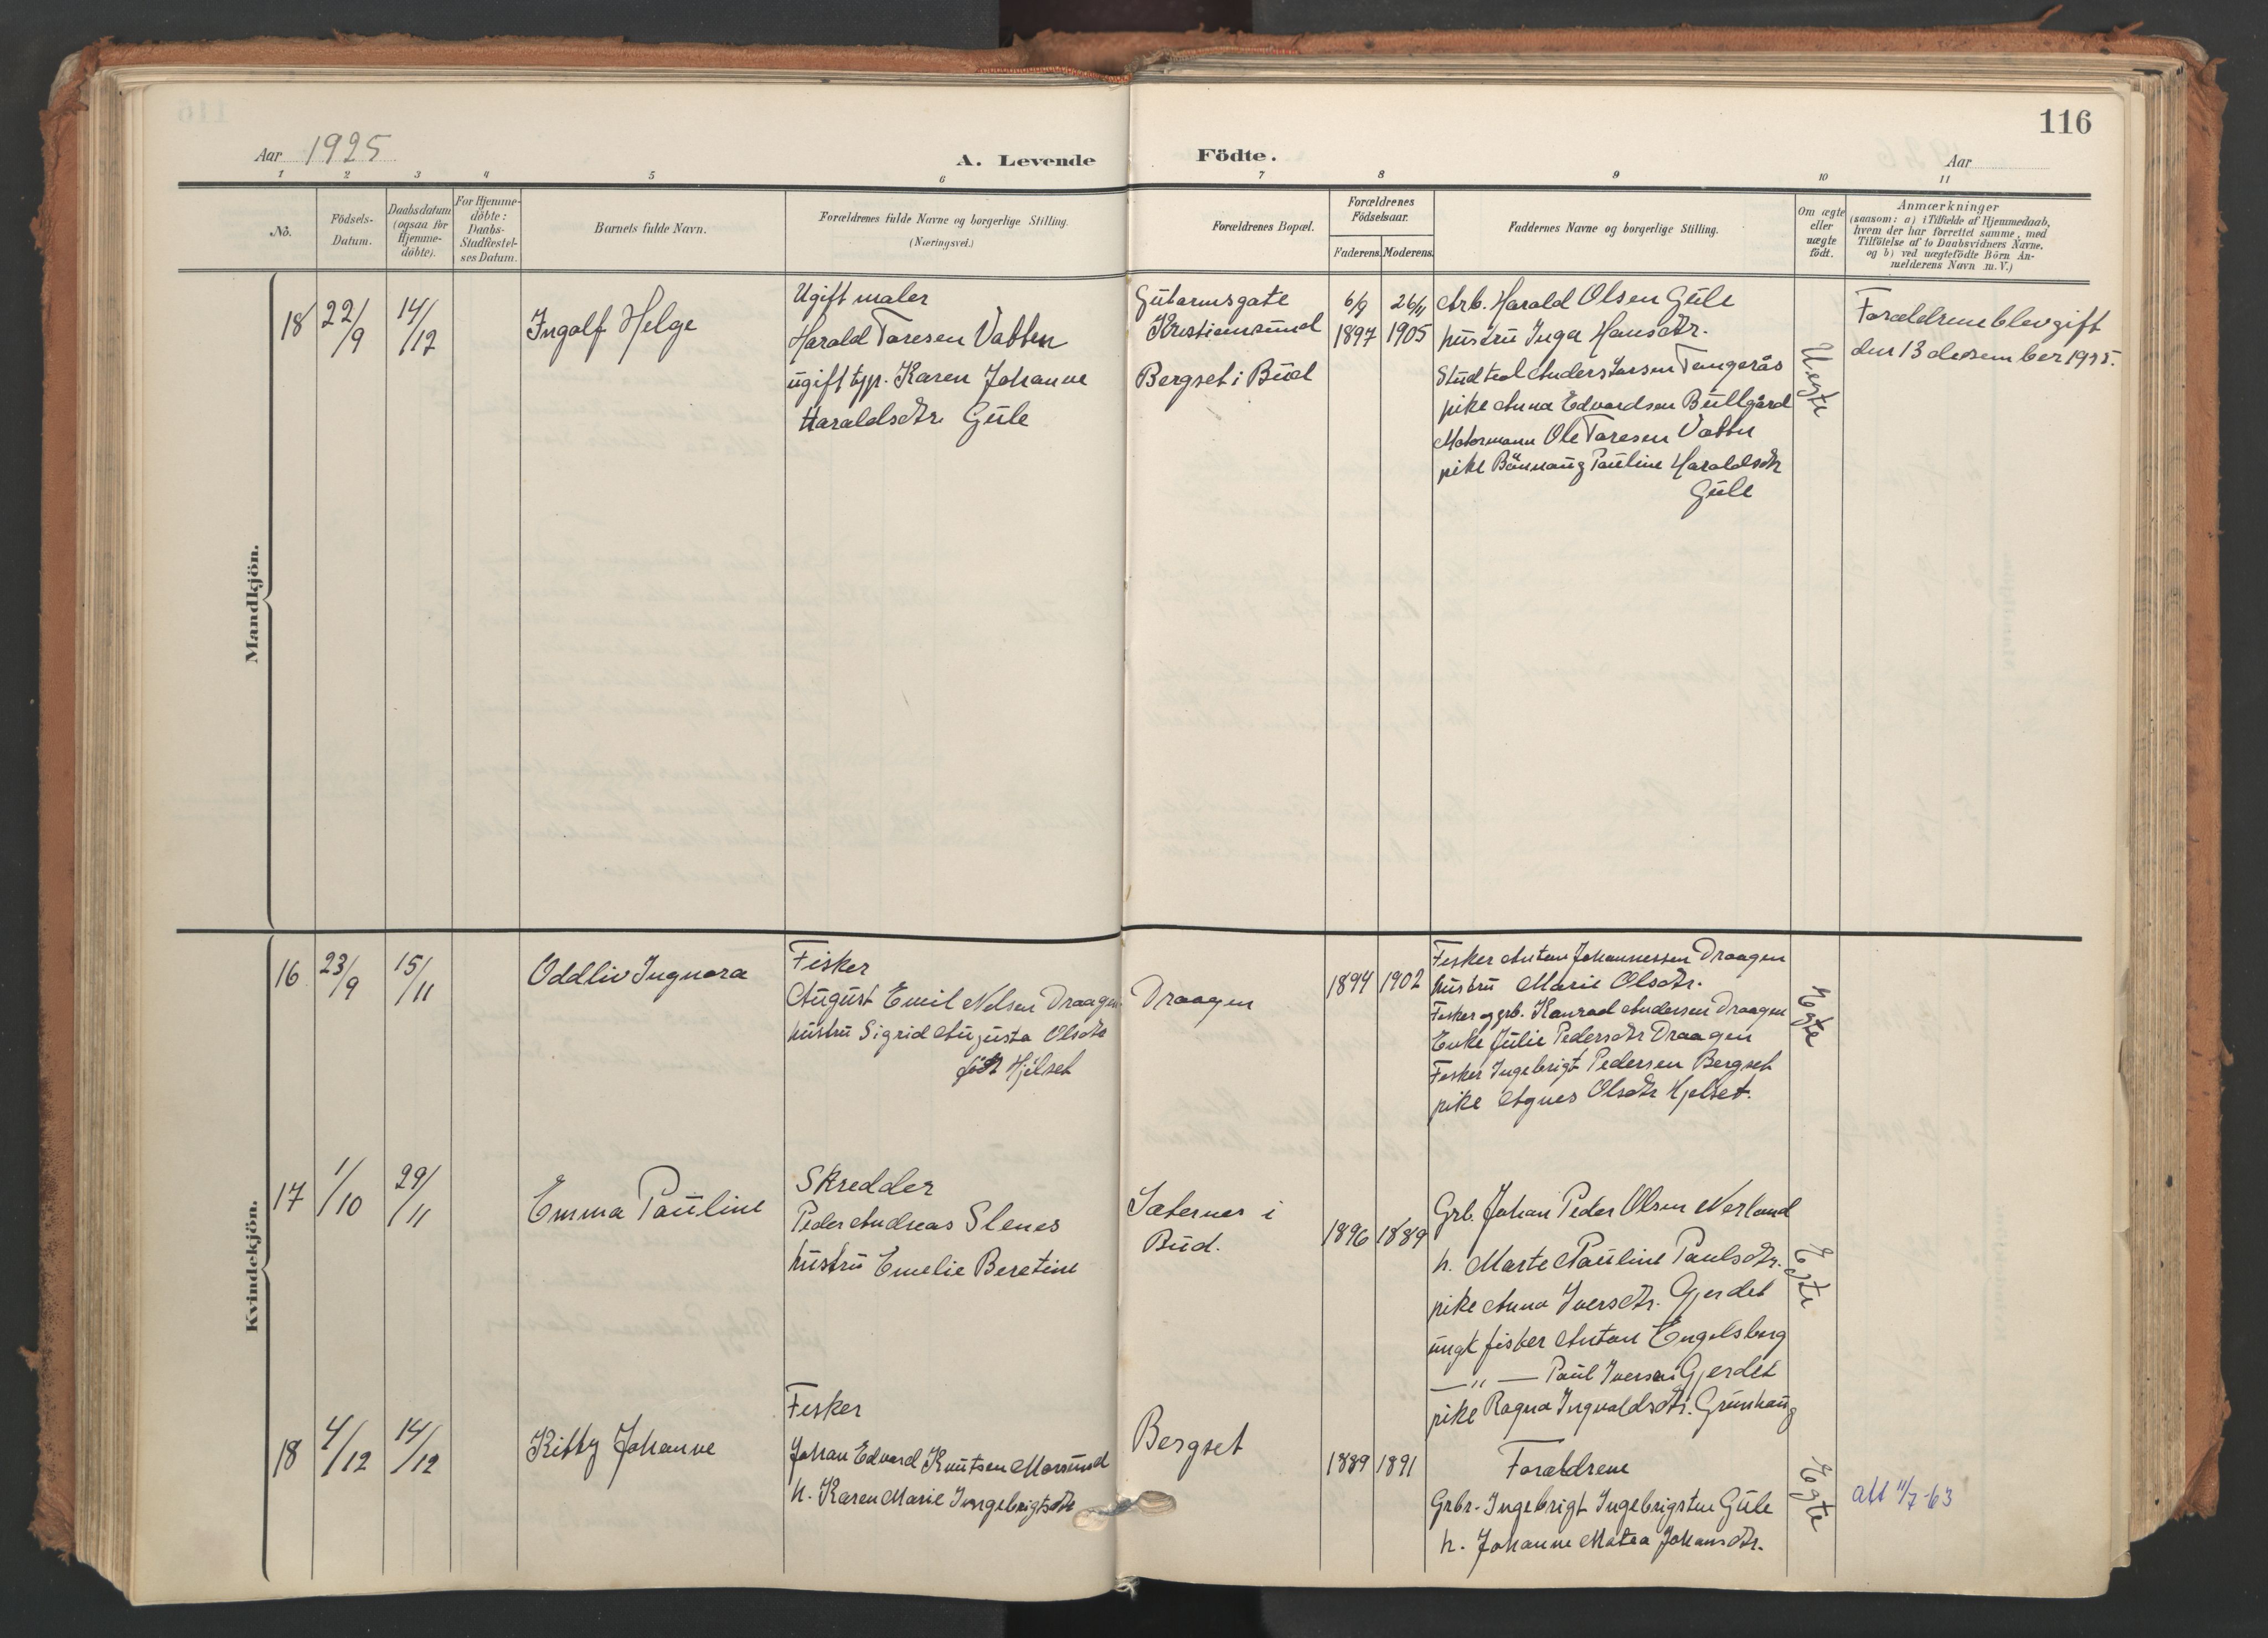 116
Aar 1925
A. Levende Födte.
Aar
1 2 3 4 5 6 7 8 9 10 11
No.
Födsels-
Datum.
Daabsdatum
(ogsaa for
Hjemme-
döbte).
For Hjemme-
döbte:
Daabs-
Stadfæstel-
ses Datum.
Barnets fulde Navn.
Forældrenes fulde Navne og borgerlige Stilling.
(Næringsvei.)
Forældrenes Bopæl.
Forældrenes
Födselsaar.
Faderens. Moderens.
Faddernes Navne og borgerlige Stilling.
Om ægte
eller
uægte
födt.
Anmærkninger
(saasom: a) i Tilfælde af Hjemmedaab,
hvem der har forrettet samme, med
Tilföielse af to Daabsvidners Navne,
og b) ved uægtefödte Börn An-
melderens Navn m. V.)
Mandkjön.
18 22/9 14/12 Ingolf Helge
Ugift maler
Harald Toresen Vatten
ugift typ. Karen Johanne
Haraldsdtr Gule
Kristiansund
Bergset i Bud
6/9 1897
26/11 1905
Arb. Harald Olsen Gule
hustru Inga Hansdtr.
Stud teol Anders Larsen Tangerås
pike Anna Edvardsen Bullgård
Motormann Ole Toresen Vatten
pike Pauline Haraldsdtr
Gule
Uegte
Forældrene blev gift
den 13 desember 1925.
Kvindekjön.
16 23/9 15/11 Oddliv Ingnora
Fisker
August Emil Nelsen Draagen
hustru Sigrid Augusta Olsdtr
född Hjelset
Draagen
1894 1902
Fisker Anton Johannessen Draagen
hustru Marie Olsdtr.
Fisker og grb. Konrad Andersen Draagen
Enke Julie Pedersdtr Draagen
Fisker Ingebrigt Pedersen Bergset
pike Agnes Olsdtr Hjelset.
Egte
17 1/10 29/11 Emma Pauline
Skredder
Peder Andreas Slenes
hustru Emelie Beretine
Sæternes i
Bud.
1896 1889
Grb. Johan Peder Olsen Nerland
h. Marte Pauline Paulsdtr.
pike Anna Iversdtr. Gjerdet
ungk fisker Anton Engelsberg
— " — Paul Iversen Gjerdet
pike Ragna Ingvaldsdtr. Grønhaug
Egte
18 4/12 14/12 Kitty Johanne
Fisker
Johan Edvard Knutsen Morsund
h. Karen Marie Ingebrigtsdtr
Bergset
1889 1891
Forældrene
Grbr. Ingebrigt Ingebrigtsen Gule
h. Johanne Matea Johansdtr.
Egte
att 11/7-63